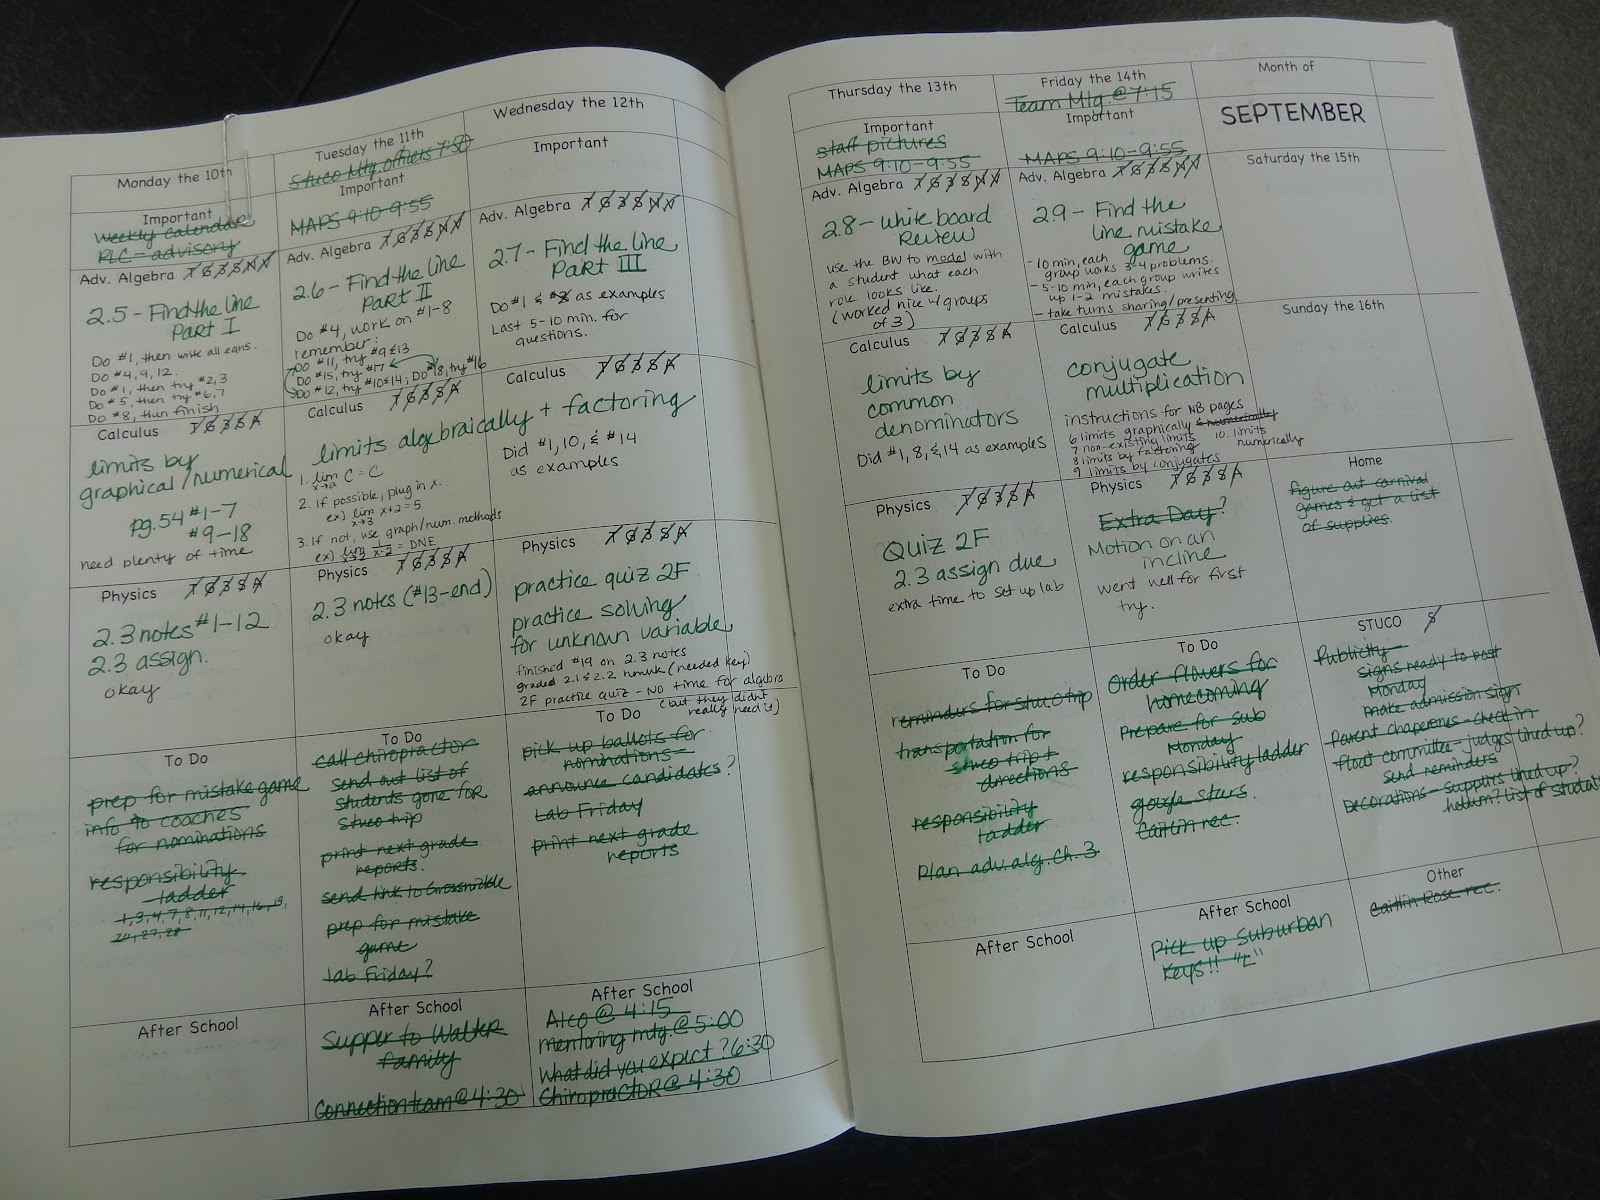 Monday the 10th
Important
weekly calendar
PLC - advisory
Adv. Algebra
2.5 - Find the line
Part I
Do #1, then write all eqns.
Do #4, 9, 12.
Do #1, then try #2,3
Do #5, then try #6,7
Do #8, then finish
Calculus
limits by
graphical/numerical
pg. 54 #1-7
#9-18
need plenty of time
Physics
2.3 notes #1-12
2.3 assign.
okay
To Do
prep for mistake game
info to coaches
for nominations
responsibility
ladder
1, 3, 4, 7, 8, 11, 12, 14, 16,
27, 28
After School
Tuesday the 11th
Stuco Mtg. officers 7:50
Important
MAPS 9:10-9:55
Adv. Algebra
2.6 - Find the line
Part II
Do #4, work on #1-8
remember:
Do #11, try #9 & 13
Do #15, try #17
Do #12, try #10 & 14, Do #18, try #16
Calculus
limits algebraically + factoring
1. lim C = C
x→a
2. If possible, plug in x.
ex) lim x+2 = 5
x→3
3. If not, use graph/num. methods
ex) lim 1/x-2 = DNE
Physics
2.3 notes (#13-end)
okay
To Do
call chiropractor
send out list of
students gone for
stuco trip
print next grade
reports.
send link to
prep for mistake
game
lab Friday?
After School
Supper to Walter
family
Connection team @ 4:30
Wednesday the 12th
Important
Adv. Algebra
2.7 - Find the line
Part III
Do #1 & as examples
Last 5-10 min. for
questions.
Calculus
Did #1, 10, & #14
as examples
Physics
practice quiz 2F
practice solving
for unknown variable
finished #19 on 2.3 notes
graded 2.1 & 2.2 (needed key)
2F practice quiz - NO time for algebra
(but they didn't
really need it)
To Do
pick up ballots for
nominations
announce candidates?
Lab Friday
print next grade
reports
After School
Alco @ 4:15
mentoring mtg. @ 5:00
What did you expect? 6:30
Chiropractor @ 4:30
Thursday the 13th
Important
staff pictures
MAPS 9:10-9:55
Adv. Algebra
2.8 - white board
Review
use the BW to model with
a student what each
role looks like.
(worked nice w/ groups
of 3)
Calculus
limits by
common
denominators
Did #1, 8, & 14 as examples
Physics
Quiz 2F
2.3 assign due
extra time to set up lab
To Do
reminders for stuco trip
transportation for
stuco trip +
directions
responsibility
ladder
Plan adv. alg. Ch. 3
After School
Friday the 14th
Team Mtg. @ 7:15
Important
MAPS 9:10-9:55
Adv. Algebra
2.9 - Find the
line mistake
game
- 10 min, each
group works 3-4 problems.
- 5-10 min, each group writes
up 1-2 mistakes.
- take turns sharing/presenting
Calculus
conjugate
multiplication
instructions for NB pages
6 limits graphically & numerically
7 non-existing limits
8 limits by factoring
9 limits by conjugates
10. limits
numerically
Physics
Extra Day?
Motion on an
incline
went well for first
try.
To Do
order flowers for
homecoming
Prepare for sub
Monday
responsibility ladder
google
Caitlin rec.
After School
Pick up Suburban
Keys!! "L"
Month of
SEPTEMBER
Saturday the 15th
Sunday the 16th
Home
figure out carnival
games & get a list
of supplies.
STUCO
Publicity -
signs ready to post
Monday
make admission sign
Parent chaperones - check in
float committee - judges lined up?
send reminders
Decorations - supplies lined up?
helium? list of
Other
Caitlin Rose rec.